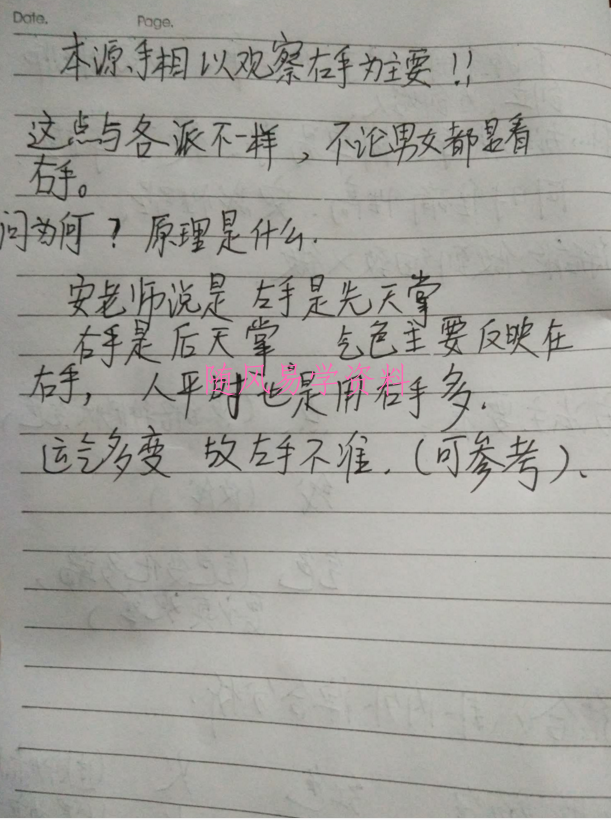 Date. Page.
本源手相以观察右手为主要!!
这点与各派不一样，不论男女都是看
右手。
问为何？原理是什么.
安老师说是 左手是先天掌
右手是后天掌 气色主要反映在
右手， 人平时也是用右手多.
随风易学资料
运气多变 故左手不准.（可参考）、